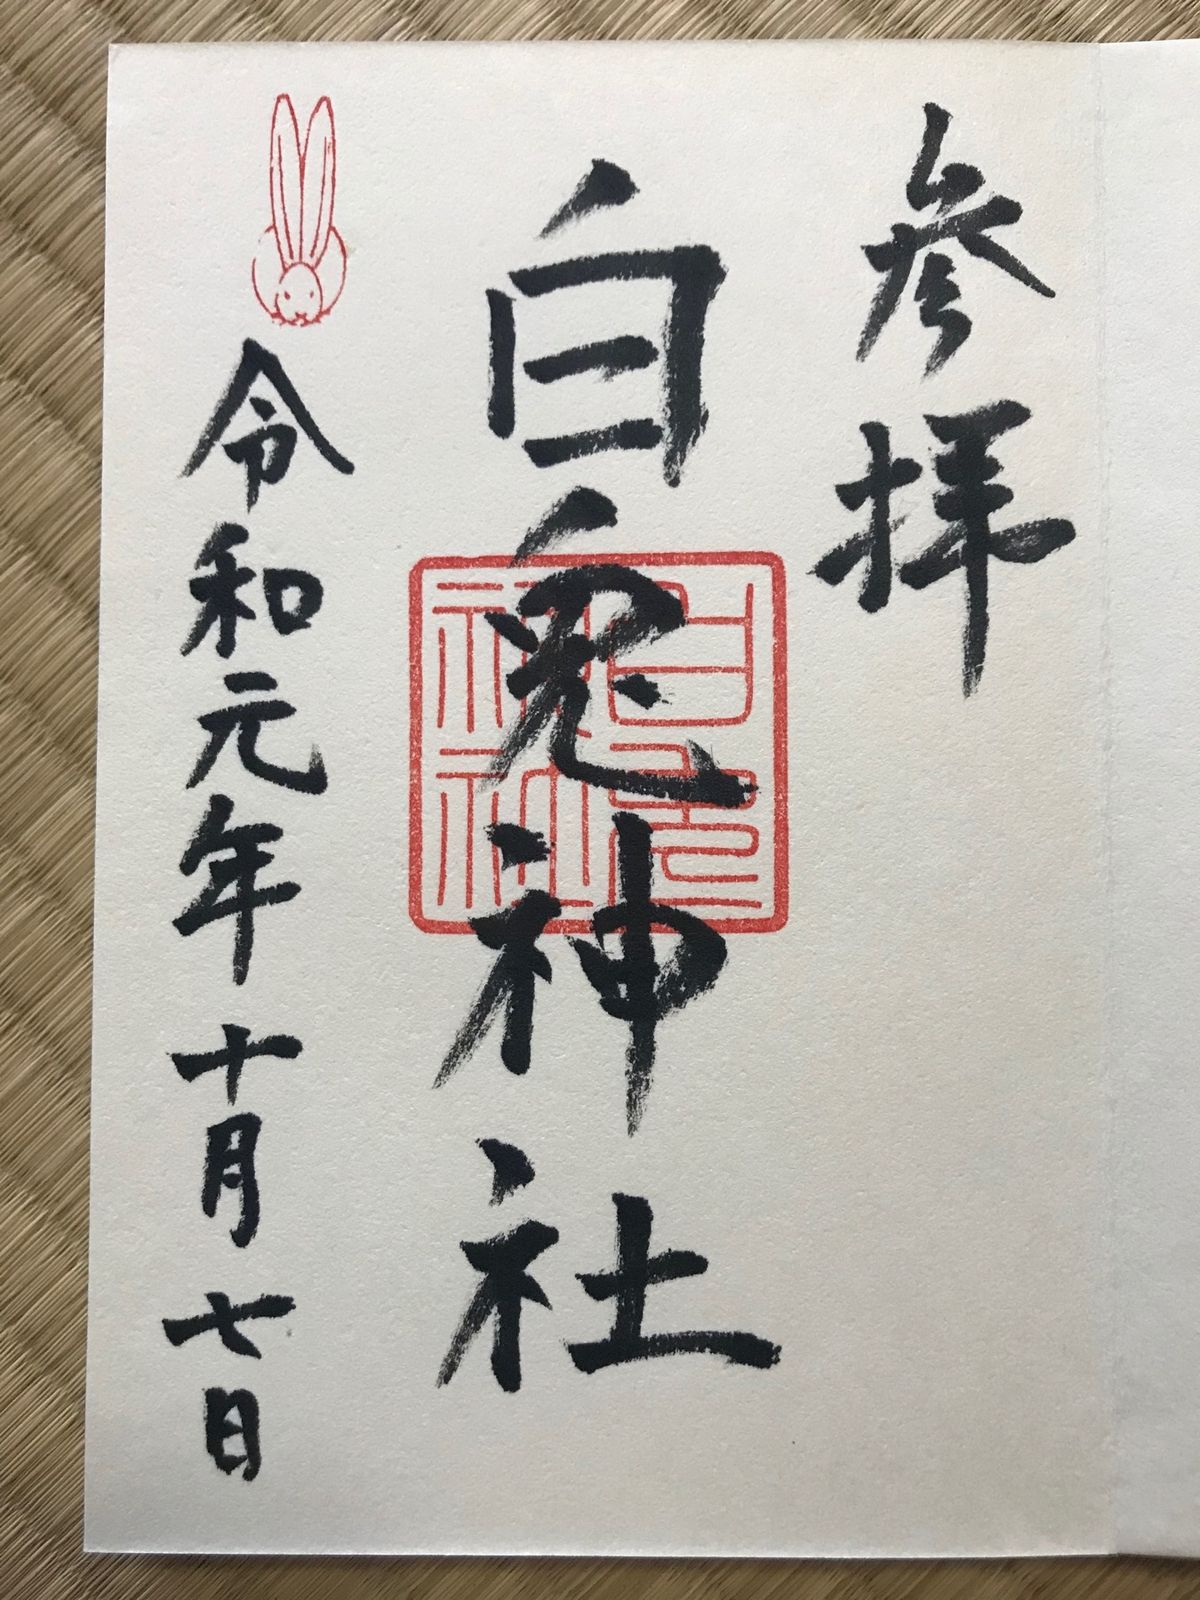 参拝
白兎神社
白兎神社
令和元年十月七日